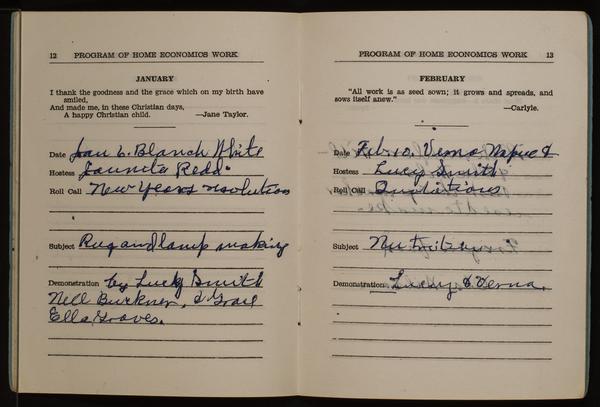 12 PROGRAM OF HOME ECONOMICS WORK
JANUARY
I thank the goodness and the grace which on my birth have
smiled,
And made me, in these Christian days,
A happy Christian child. —Jane Taylor.
Date Jan 6. Blanch White
Hostess Jaunita Redd.
Roll Call New Years resolution
Subject Rug and lamp making
Demonstration by Lucy Smith
Nell Burkner, &
Ella Graves.
PROGRAM OF HOME ECONOMICS WORK 13
FEBRUARY
"All work is as seed sown; it grows and spreads, and
sows itself anew."
—Carlyle.
Date Feb. 10. Verna
Hostess Lucy Smith
Roll Call Quotations
Subject
Demonstration Lucy & Verna.